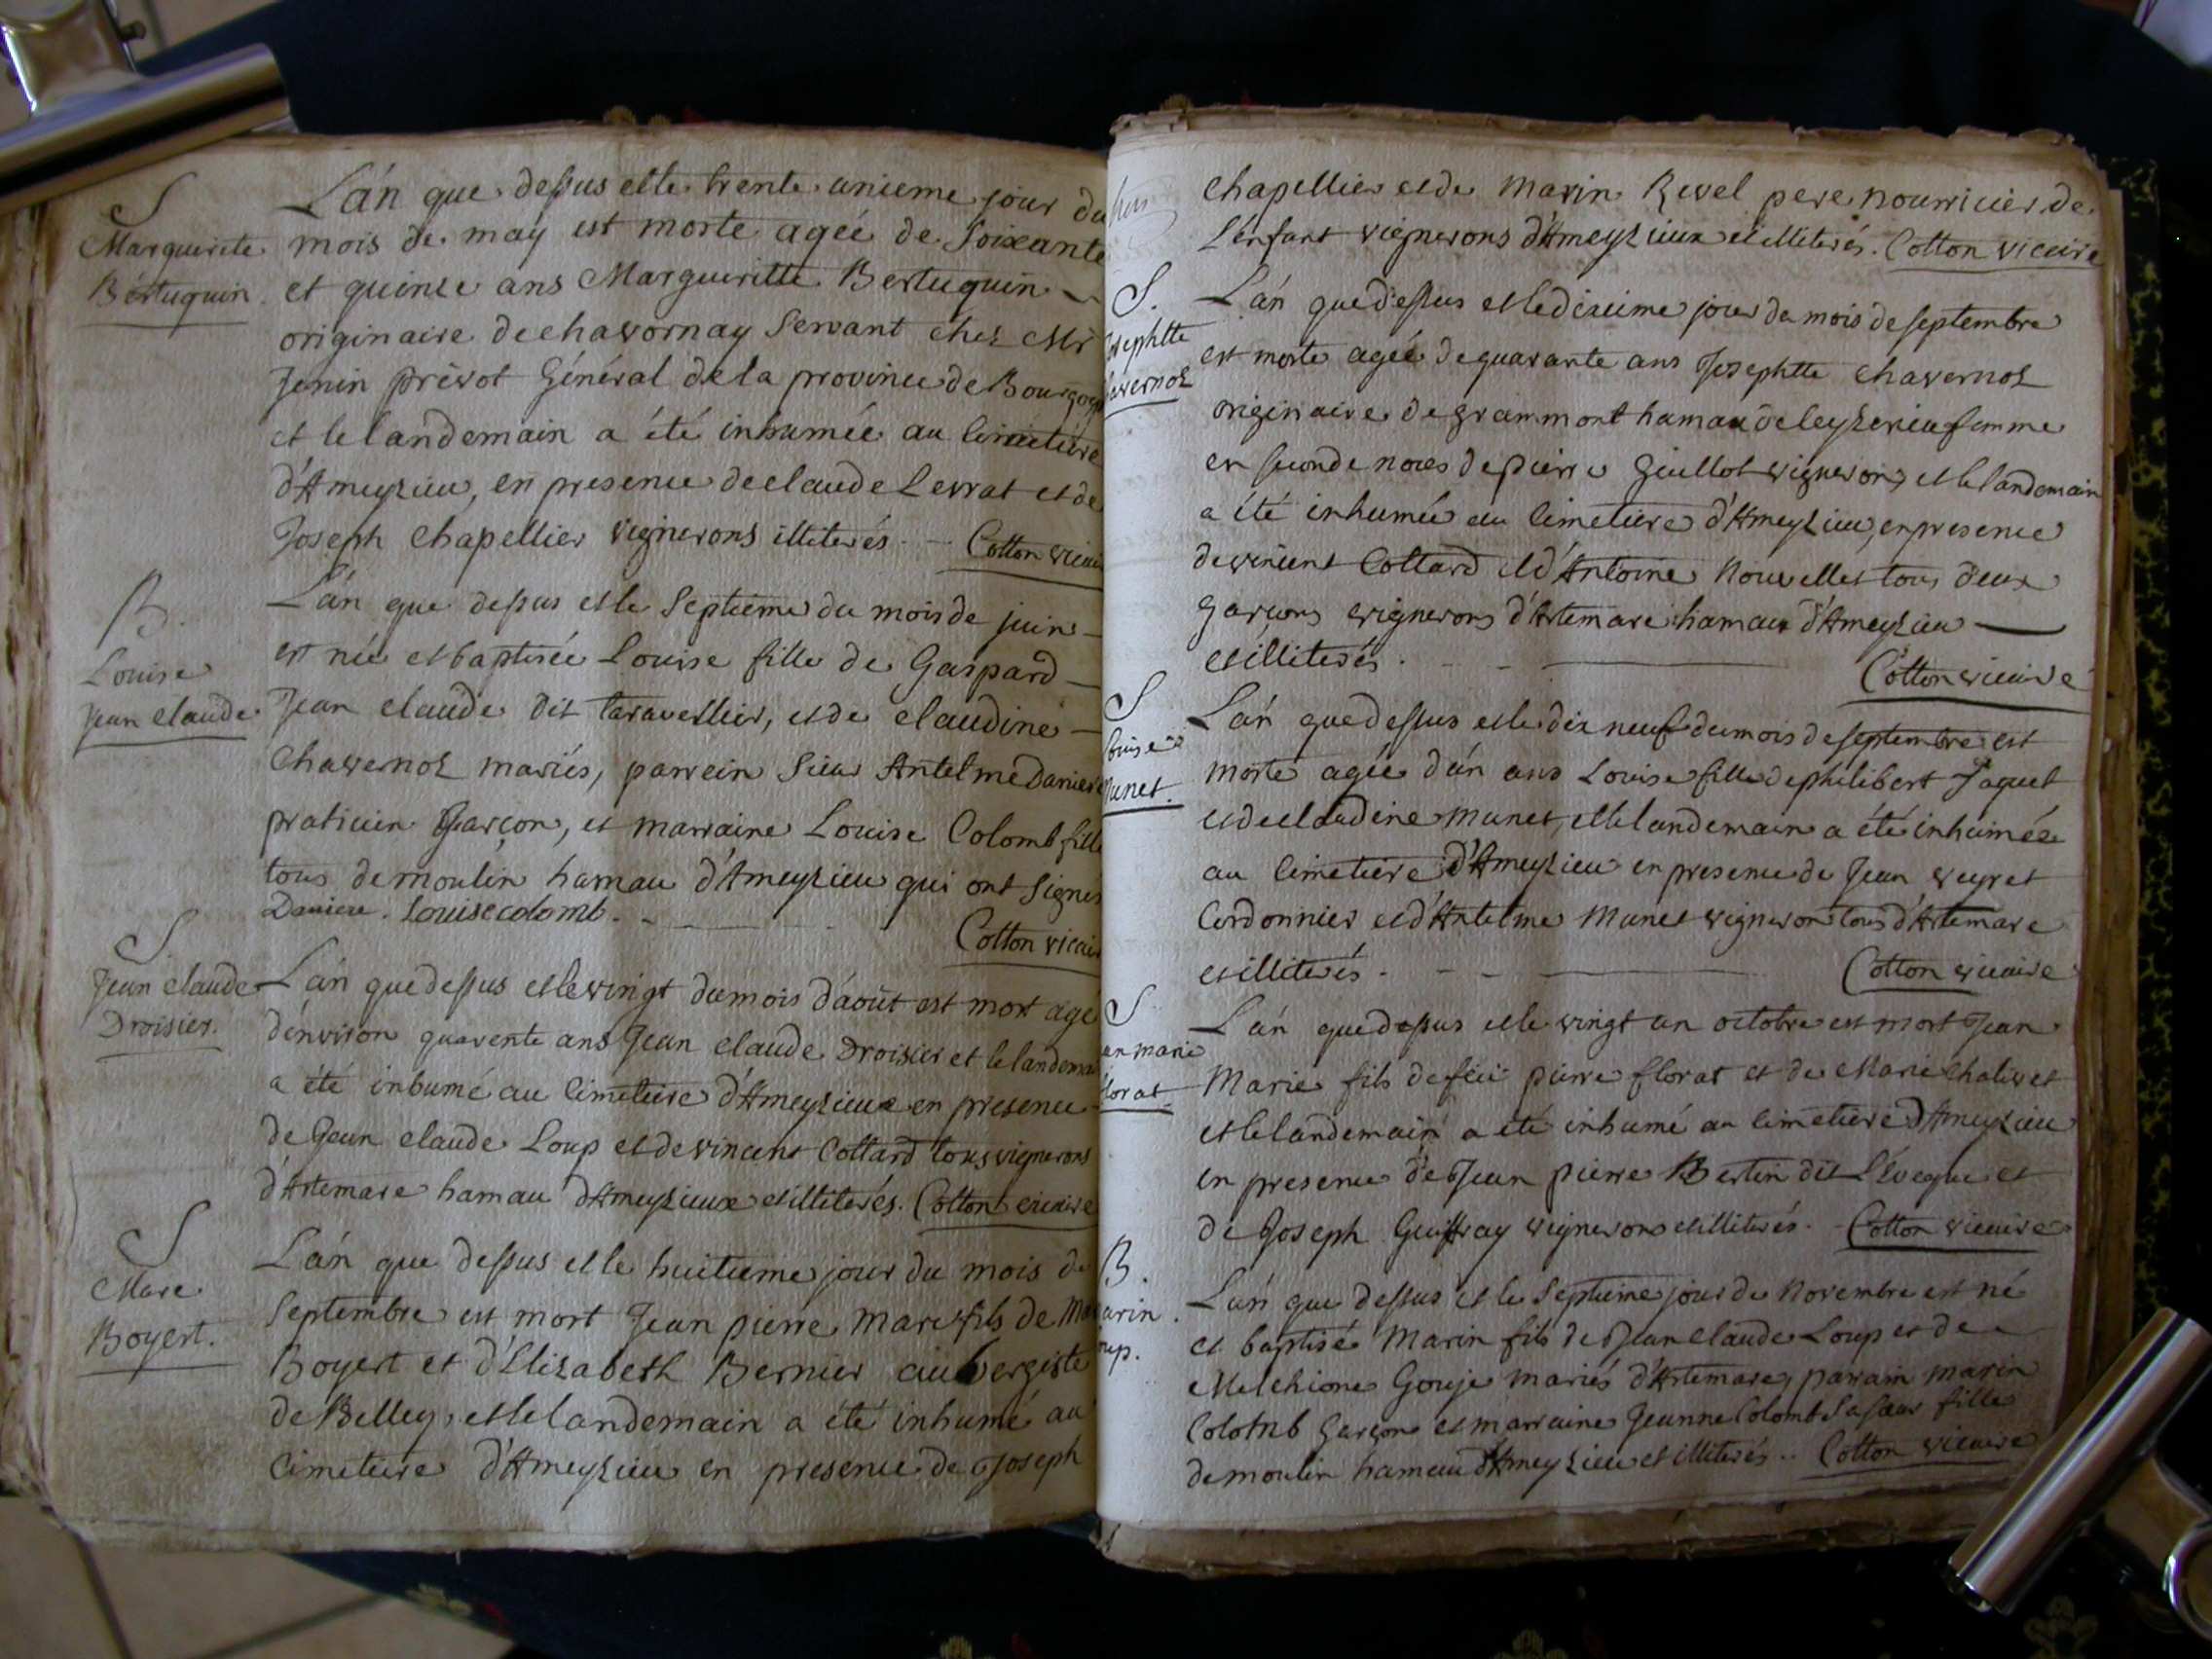 S
Marguerite
Bertuquin
L'an que dessus et le trente unieme jour du
mois de may est morte ageé de soixante
et quinze ans Margueritte Bertuquin
originaire de chavornay servant chez Mr
Jenin prévot Général de la province de Bourgogne
et le landemain a été inhumée au Cimetiere
d'Ameyzieu, en presence de claude Levrat et de
Joseph Chapellier vignerons illiterés. Cotton vicaire
B.
Louise
Jean claude
L'an que dessus et le septieme du mois de juin
est née et baptisée Louise fille de Gaspard
Jean claude dit taravellier, et de claudine
Chavernoz mariés, parrein sieur Antelme Daniere
praticien Garçon, et marraine Louise Colomb fille
tous de moulin hamau d'Ameyzieu qui ont signés
Daniere. Louise colomb.
Cotton vicaire
S
Jean claude
Droisier.
L'an que dessus et le vingt du mois d'août est mort agé
d'environ quarente ans Jean claude Droisier et le landemain
a été inhumé au Cimetiere d'Ameyzieux en presence
de Jean claude Loup et de vincent Cottard tous vignerons
d'Artemare hamau d'Ameyzieux et illiterés. Cotton vicaire
S
Marc
Boyert.
L'an que dessus et le huitieme jour du mois de
Septembre est mort Jean pierre Marc fils de Marc
Boyert et d'Elizabeth Bernier aubergiste
de Belley, et le landemain a été inhumé au
Cimetiere d'Ameyzieu en presence de Joseph
chapellier et de Marin Revel pere nourricier de
L'enfant vignerons d'Ameyzieux et illiterés. Cotton vicaire
S.
Josephtte
Chavernoz
L'an que dessus et le dixieme jour du mois de septembre
est morte ageé de quarante ans Josephtte Chavernoz
originaire de grammont hamau de leyzerieu femme
en seconde noces de pierre Guillot vigneron, et le landemain
a été inhumée au Cimetiere d'Ameyzieu, en presence
de vincent Cottard et d'Antoine Nouvellet tous deux
garçons vignerons d'Artemare hamau d'Ameyzieu
et illiterés.
Cotton vicaire
S
Louise
Munet.
L'an que dessus et le dix neuf du mois de septembre est
morte agée d'un ans Louise fille de philibert Jaquet
et de claudine Munet, et le landemain a été inhumée
au Cimetiere d'Ameyzieu en presence de Jean veyret
Cordonnier et d'Antelme Munet vigneron tous d'Artemare
et illiterés.
Cotton vicaire
S
Jean marie
florat.
L'an que dessus et le vingt un octobre est mort Jean
Marie fils de feu pierre florat et de Marie Chalivet
et le landemain a été inhumé au Cimetiere d'Ameyzieu
en presence de Jean pierre Bertin dit L'éveque et
de Joseph Guiffray vignerons et illiterés. Cotton vicaire
B.
Marin
Loup.
L'an que dessus et le septieme jour de Novembre est né
et baptisé Marin fils de Jean claude Loup et de
Melchione Gouje mariés d'Artemare, parrain marin
Colomb garçon et marraine Jeanne Colomb sa sœur fille
de moulin hameau d'Ameyzieu et illiterés. Cotton vicaire